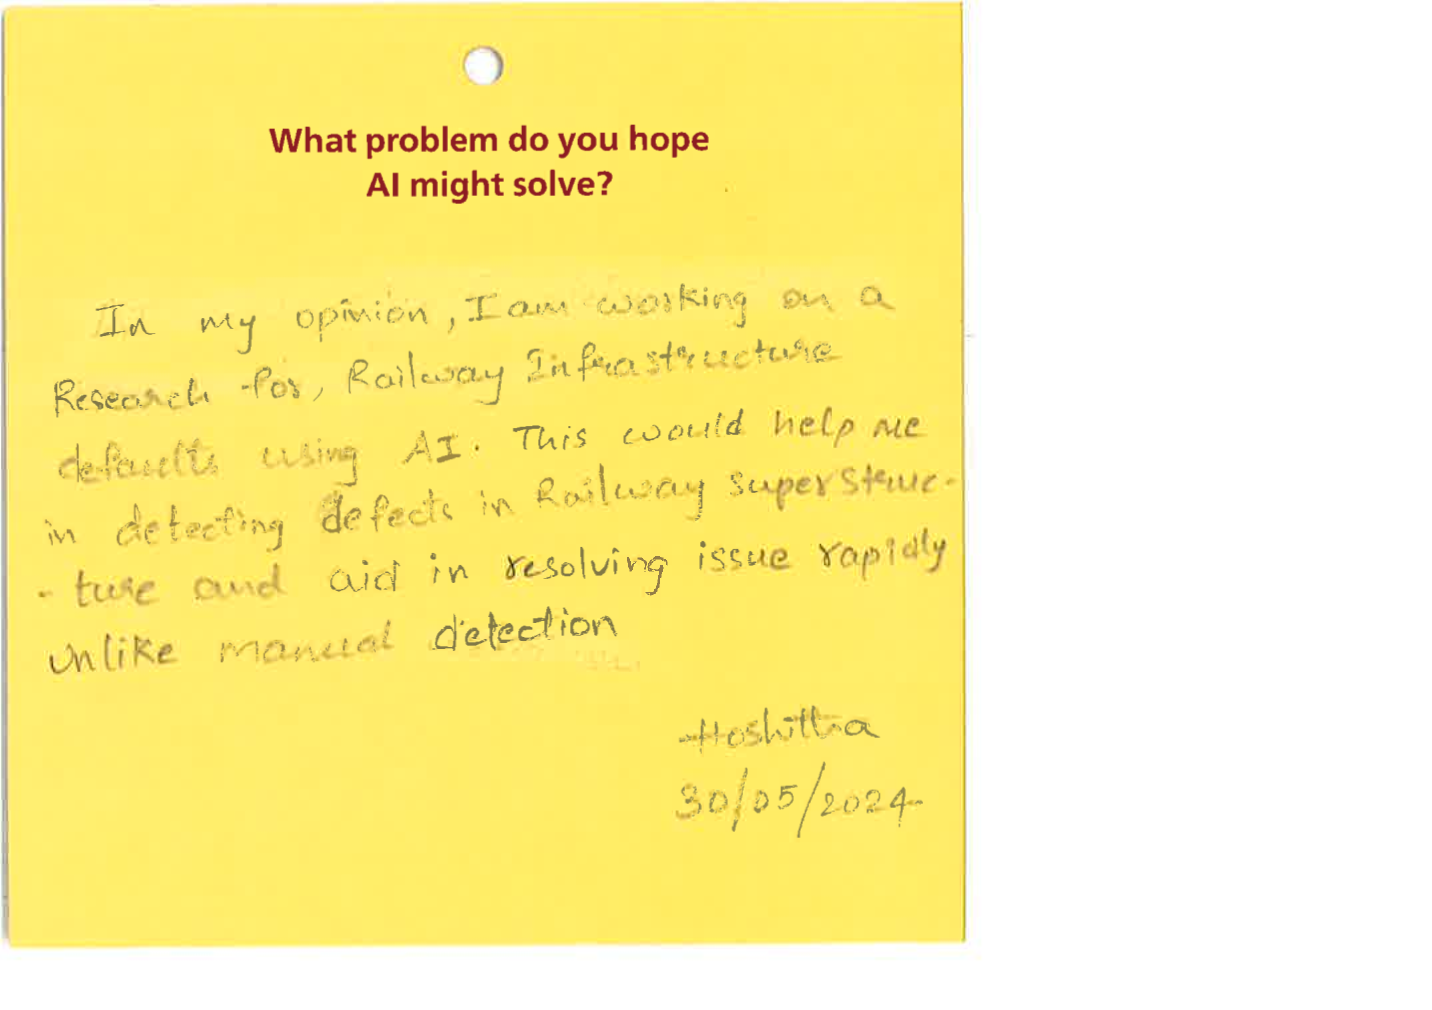 What problem do you hope
AI might solve?
In my opinion, I am working on a
Research for, Railway Infrastructure
defaults using AI. This would help me
in detecting defects in Railway superstruc-
- ture and aid in resolving issue rapidly
unlike manual detection
Hoshitha
30/05/2024